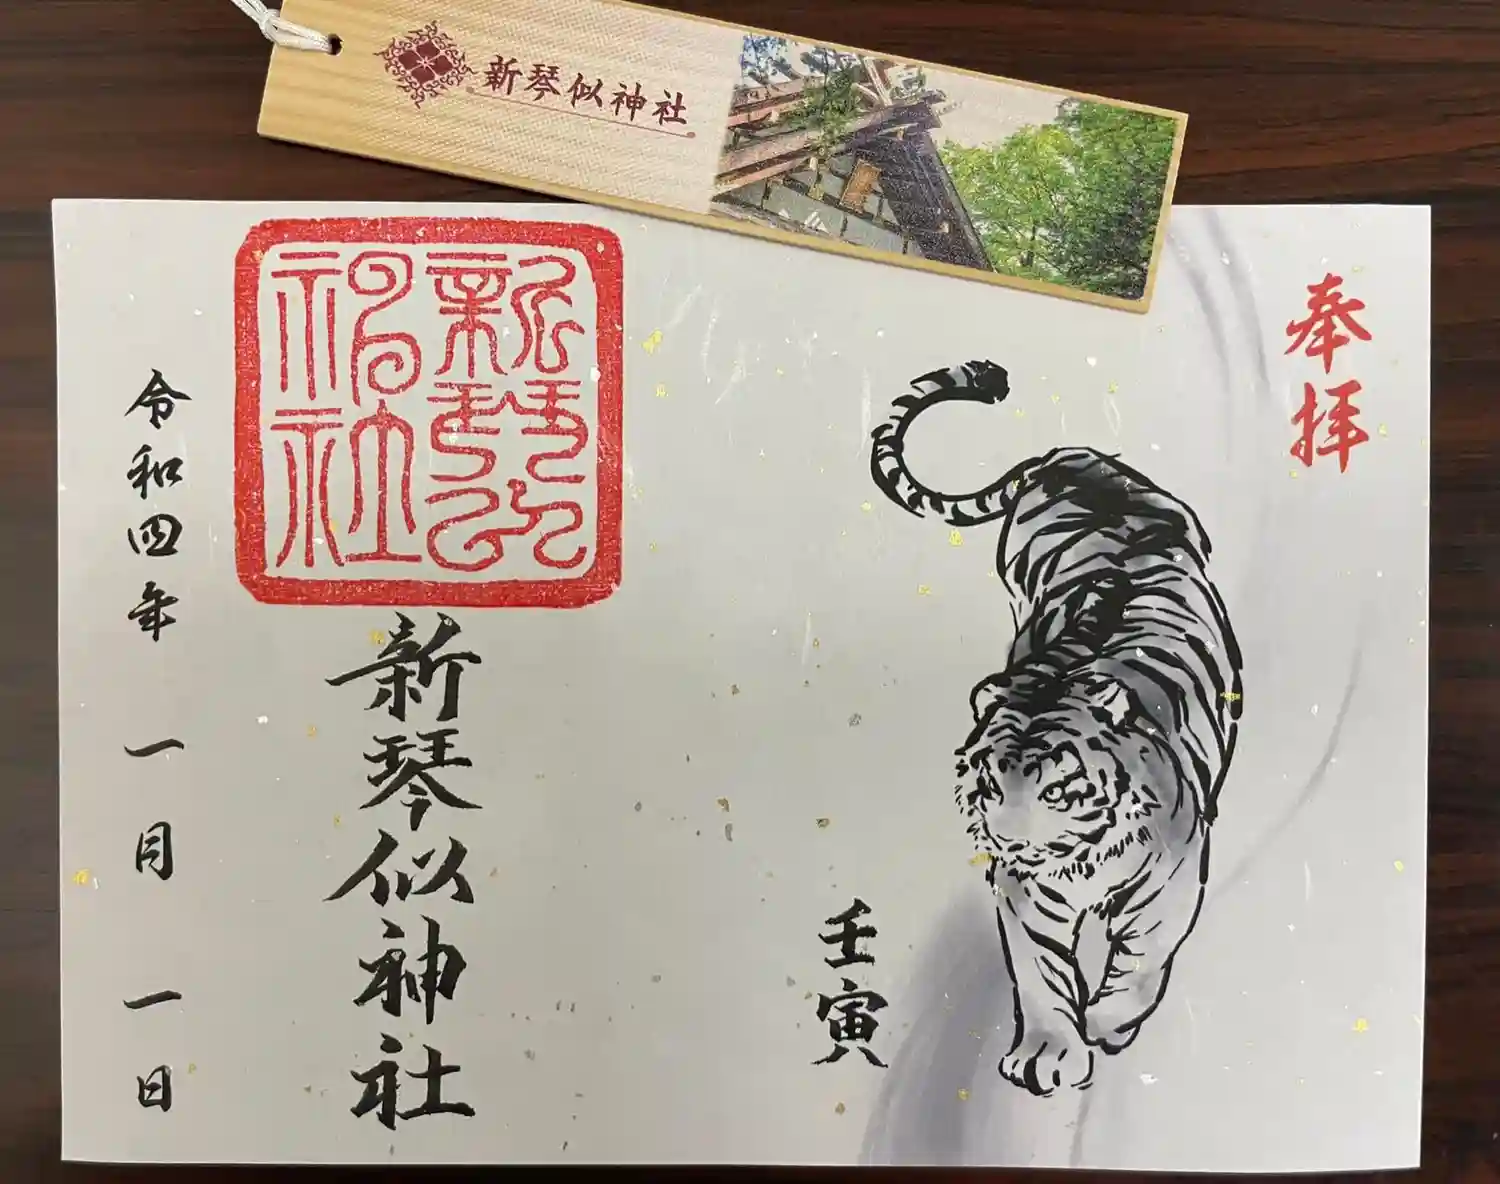 新琴似神社
奉拝
壬寅
新琴似神社
新琴似神社
令和四年一月一日